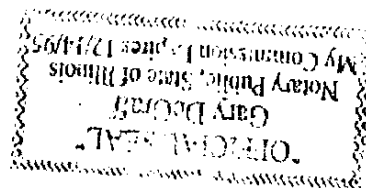 "OFFICIAL SEAL"
Gary DeGraff
Notary Public, State of Illinois
My Commission Expires 12/14/95